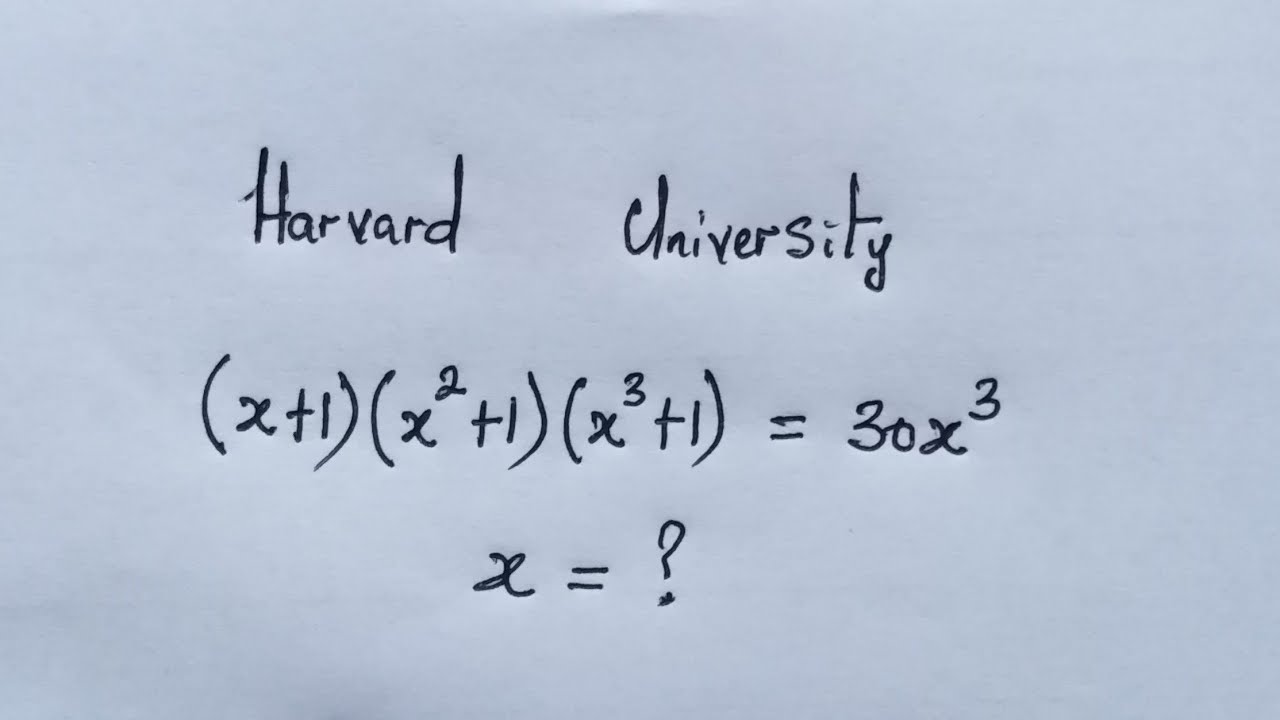 Harvard University
(x+1)(x²+1)(x³+1) = 30x³
x = ?